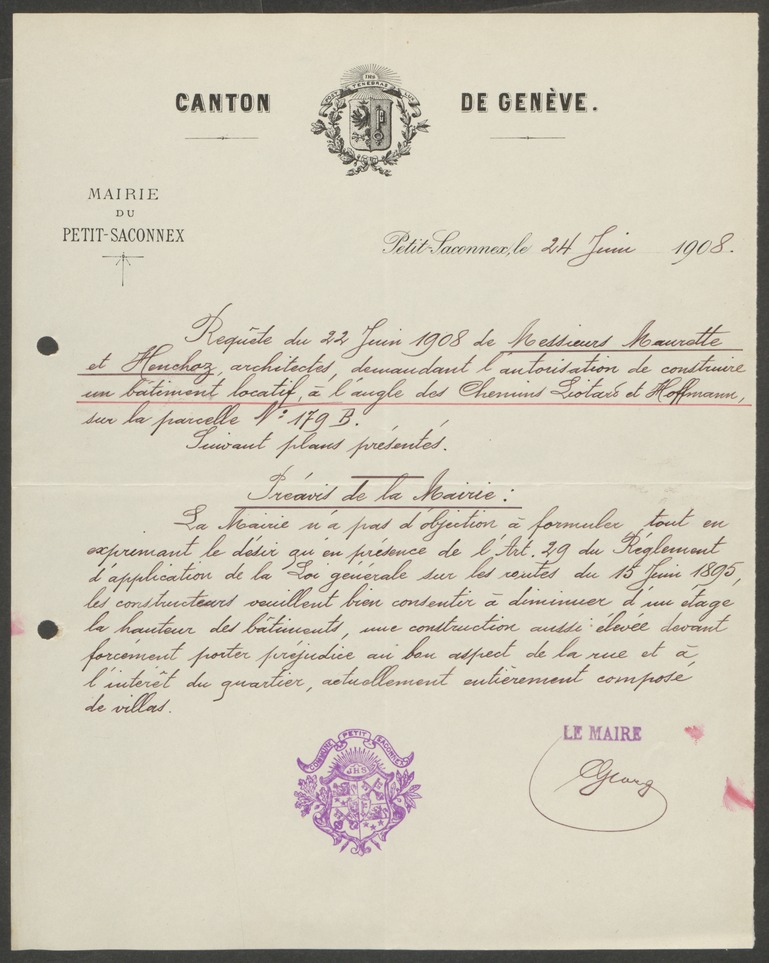 CANTON DE GENÈVE.
POST TENEBRAS LUX
MAIRIE
DU
PETIT-SACONNEX
Petit-Saconnex, le 24 Juin 1908.
Requête du 22 Juin 1908 de Messieurs Maurette
et Henchoz, architectes, demandant l'autorisation de construire
un bâtiment locatif, à l'angle des Chemins Liotard et Hoffmann,
sur la parcelle N° 179 B.
Suivant plans présentés.
Préavis de la Mairie :
La Mairie n'a pas d'objection à formuler, tout en
exprimant le désir qu'en présence de l'Art. 29 du Réglement
d'application de la Loi générale sur les routes du 15 Juin 1895,
les constructeurs veuillent bien consentir à diminuer d'un étage
la hauteur des bâtiments, une construction aussi élevée devant
forcement porter préjudice au bon aspect de la rue et à
l'intérêt du quartier, actuellement entièrement composé
de villas.
COMMUNE PETIT SACONNEX
JHS
LE MAIRE